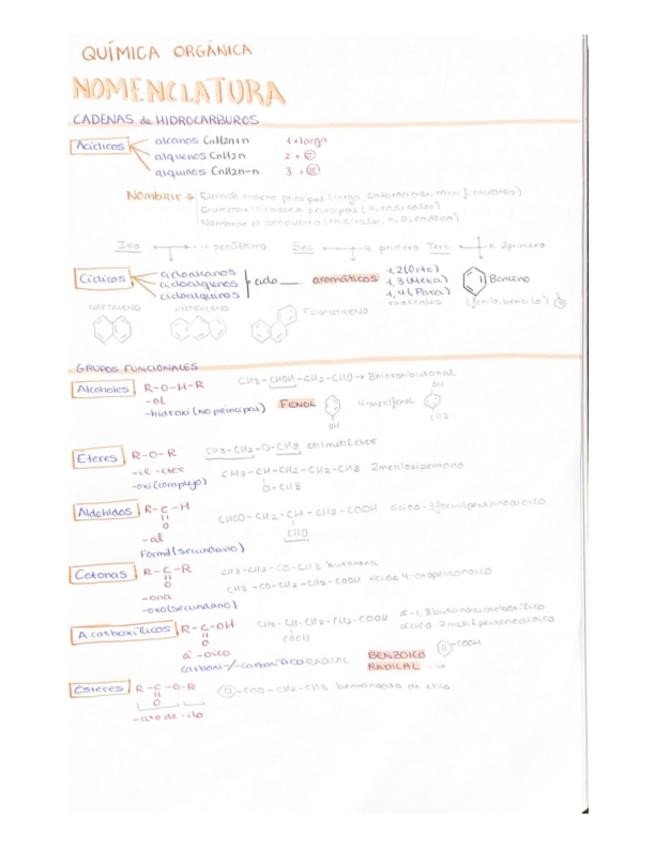 QUÍMICA ORGÁNICA
NOMENCLATURA
CADENAS de HIDROCARBUROS
Acíclicos
alcanos CnH2n+n 1 + larga
alquenos CnH2n 2 + =
alquinos CnH2n-n 3 + ≡
Nombrar → principal (larga,
Enumerar la cadena principal (=, radicales)
Nombrar el compuesto (radicales, =, ≡, cadena)
Iso → penúltimo Sec → a primero Terc → a 2primero
Cíclicos
cicloalcanos
cicloalquenos
cicloalquinos
ciclo ___
aromáticos
1,2 (Orto)
1,3 (Meta)
1,4 (Para)
radicales
Benceno
(fenilo, bencilo)
NAFTALENO ANTRALENO
GRUPOS FUNCIONALES
Alcoholes R-O-H-R
-ol
-hidroxi (No principal)
CH3-CHOH-CH2-CHO →
FENOL
OH
4-metilfenol
OH
CH3
Éteres R-O-R
-il -eter
-oxi (complejo)
CH3-CH2-O-CH3 etilmetileter
CH3-CH-CH2-CH2-CH3 2metiloxipentano
O-CH3
Aldehídos R-C-H
O
-al
Formil (secundario)
CHOO-CH2-CH-CH2-CH2-COOH ácido-3formilpentanodioico
CHO
Cetonas R-C-R
O
-ona
-oxo (secundario)
CH3-CH2-CO-CH3 butanona
CH3-CO-CH2-CH2-COOH ácido 4-oxopentanoico
A carboxílicos R-C-OH
O
á -oico
carboxi-/-carboxílico RADICAL
CH3-CH-CH2-CH2-COOH
COOH
á-1,3butanodicarboxílico
ácido-2metilpentanodioico
BENZOICO
RADICAL
-COOH
Ésteres R-C-O-R
O
-ato de -ilo
-COO-CH2-CH3 de etilo